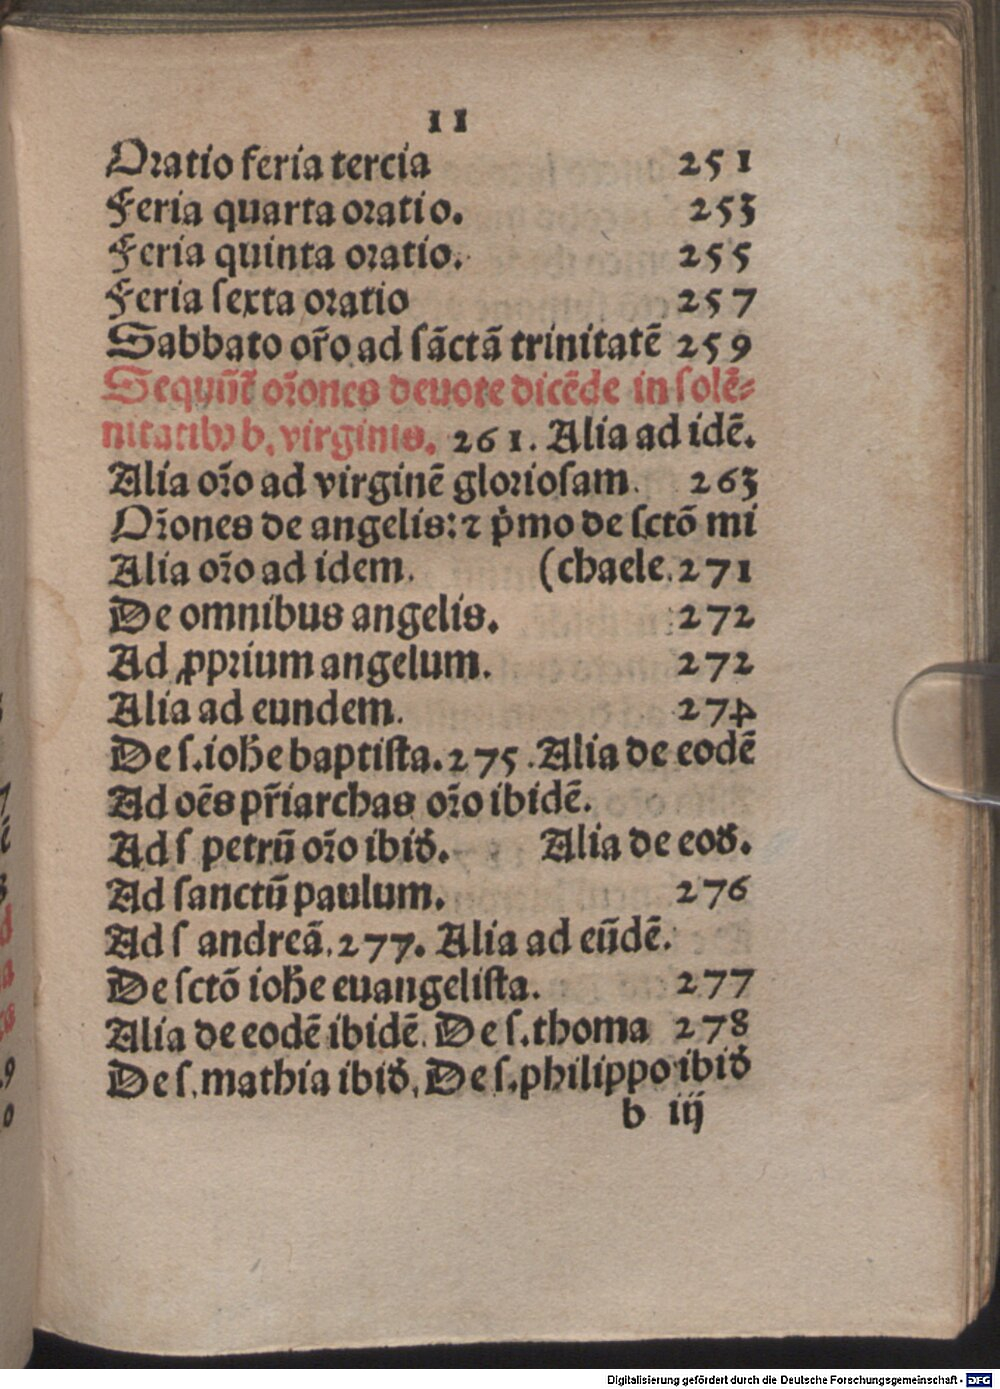 11
Oratio feria tercia 251
Feria quarta oratio. 253
Feria quinta oratio. 255
Feria ſexta oratio 257
Sabbato or̃o ad ſãctã trinitatẽ 259
Sequũt̃ or̃ones deuote dicẽde in ſolẽ⸗
nitatibꝰ b. virginis. 261. Alia ad idẽ.
Alia or̃o ad virginẽ glorioſam. 263
Or̃ones de angelis: ⁊ p̃mo de ſctõ mi
Alia or̃o ad idem. (chaele. 271
De omnibus angelis. 272
Ad ꝓprium angelum. 272
Alia ad eundem. 274
De ſ. ioh̃e baptiſta. 275. Alia de eodẽ
Ad oẽs pr̃iarchas or̃o ibidẽ.
Ad ſ petrũ or̃o ibid̃. Alia de eod̃.
Ad ſanctũ paulum. 276
Ad ſ andreã. 277. Alia ad eũdẽ.
De ſctõ ioh̃e euangeliſta. 277
Alia de eodẽ ibidẽ. De ſ. thoma 278
De ſ. mathia ibid̃. De ſ. philippo ibid̃
b iij
Digitalisierung gefördert durch die Deutsche Forschungsgemeinschaft - DFG